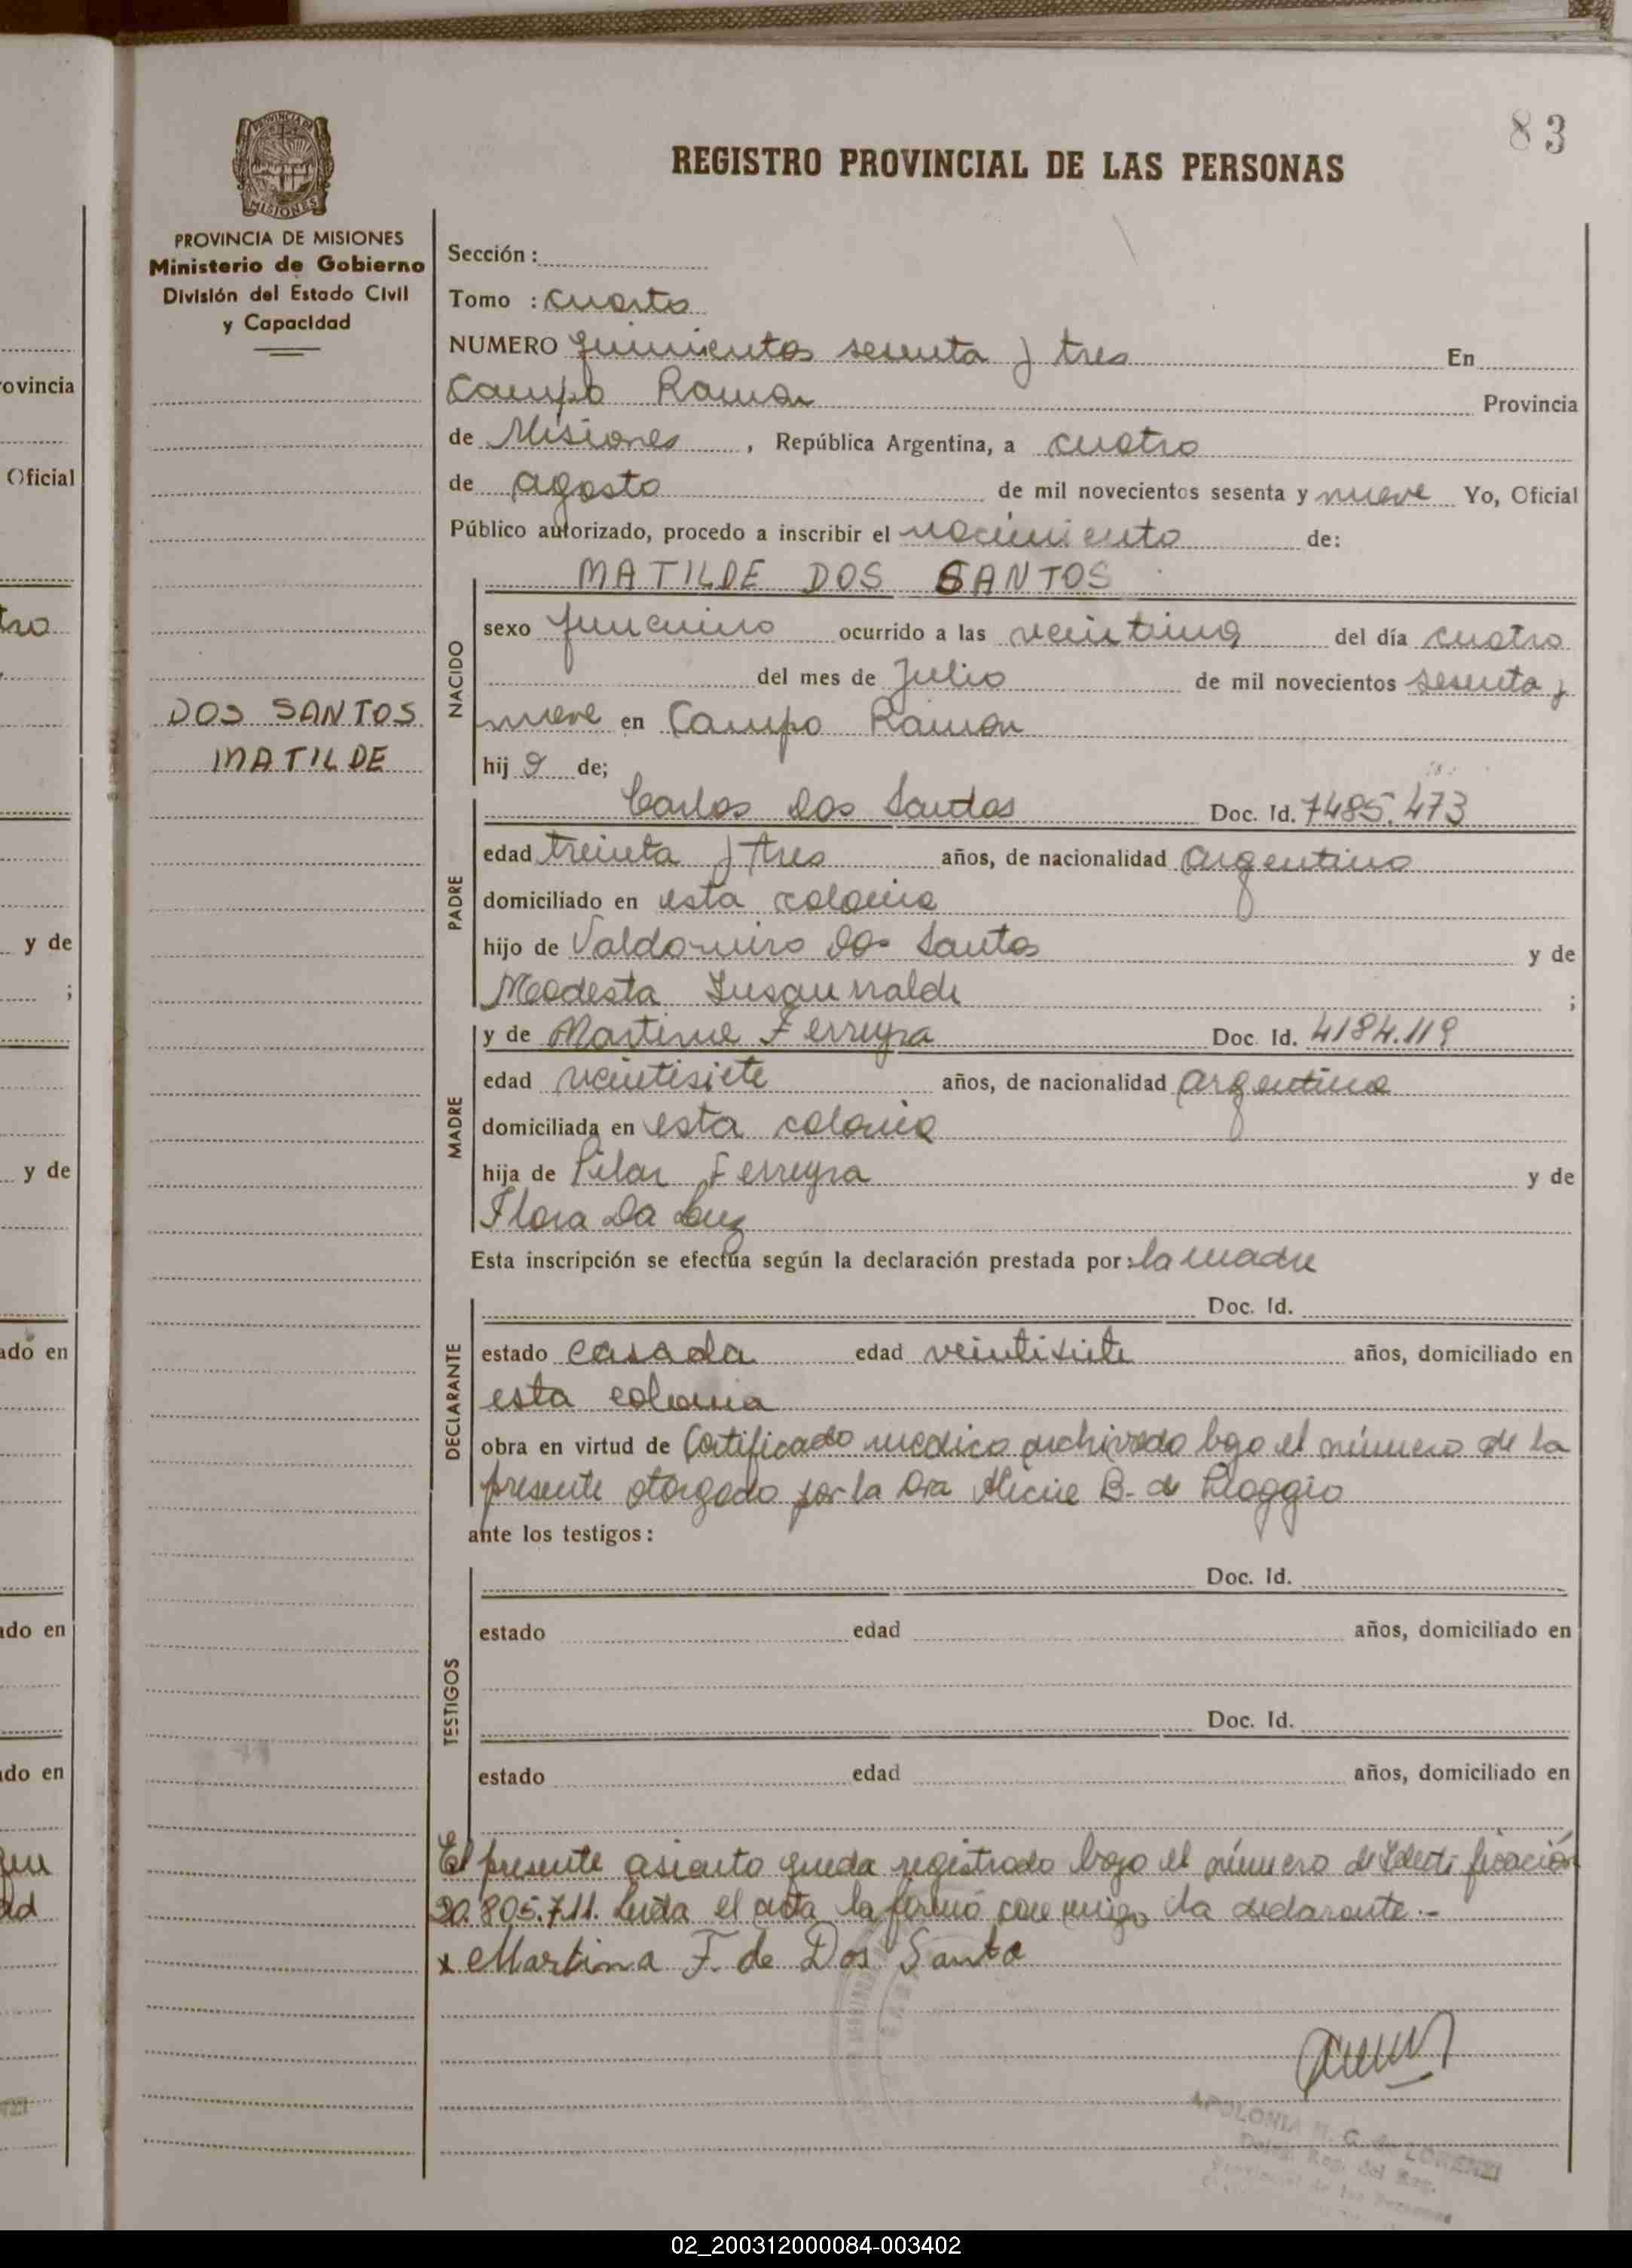 83
REGISTRO PROVINCIAL DE LAS PERSONAS
PROVINCIA DE MISIONES
Ministerio de Gobierno
División del Estado Civil
y Capacidad
Sección :
Tomo : cuarto
NUMERO quinientos sesenta y tres En
Campo Ramon Provincia
de Misiones , República Argentina, a cuatro
de agosto de mil novecientos sesenta y nueve Yo, Oficial
Público autorizado, procedo a inscribir el nacimiento de:
DOS SANTOS
MATILDE
NACIDO
MATILDE DOS SANTOS
sexo femenino ocurrido a las veintiuna del día cuatro
del mes de Julio de mil novecientos sesenta y
nueve en Campo Ramon
hij a de;
PADRE
Carlos Dos Santos Doc. Id. 7485.473
edad treinta y tres años, de nacionalidad argentino
domiciliado en esta colonia
hijo de Valdomiro Dos Santos y de
Modesta ;
MADRE
y de Martina Ferreyra Doc. Id. 4184.119
edad veintisiete años, de nacionalidad argentina
domiciliada en esta colonia
hija de Pilar Ferreyra y de
Flora Da Luz
Esta inscripción se efectúa según la declaración prestada por: la madre
DECLARANTE
Doc. Id.
estado casada edad veintisiete años, domiciliado en
esta colonia
obra en virtud de Certificado medico archivado bajo el número de la
presente otorgado por la Dra B. de
ante los testigos:
TESTIGOS
Doc. Id.
estado edad años, domiciliado en
Doc. Id.
estado edad años, domiciliado en
El presente asiento queda registrado bajo el número de Identificación
20.805.711. Leída el acta la firmó conmigo la declarante.-
x Martina F. de Dos Santo
APOLONIA N. G. de LORENZI
02_200312000084-003402